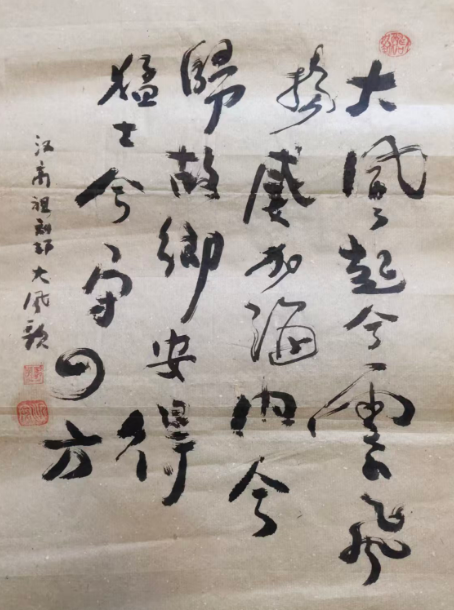 大風起兮雲飛
揚威加海内兮
歸故鄉安得
猛士兮守四方
汉高祖刘邦大風歌